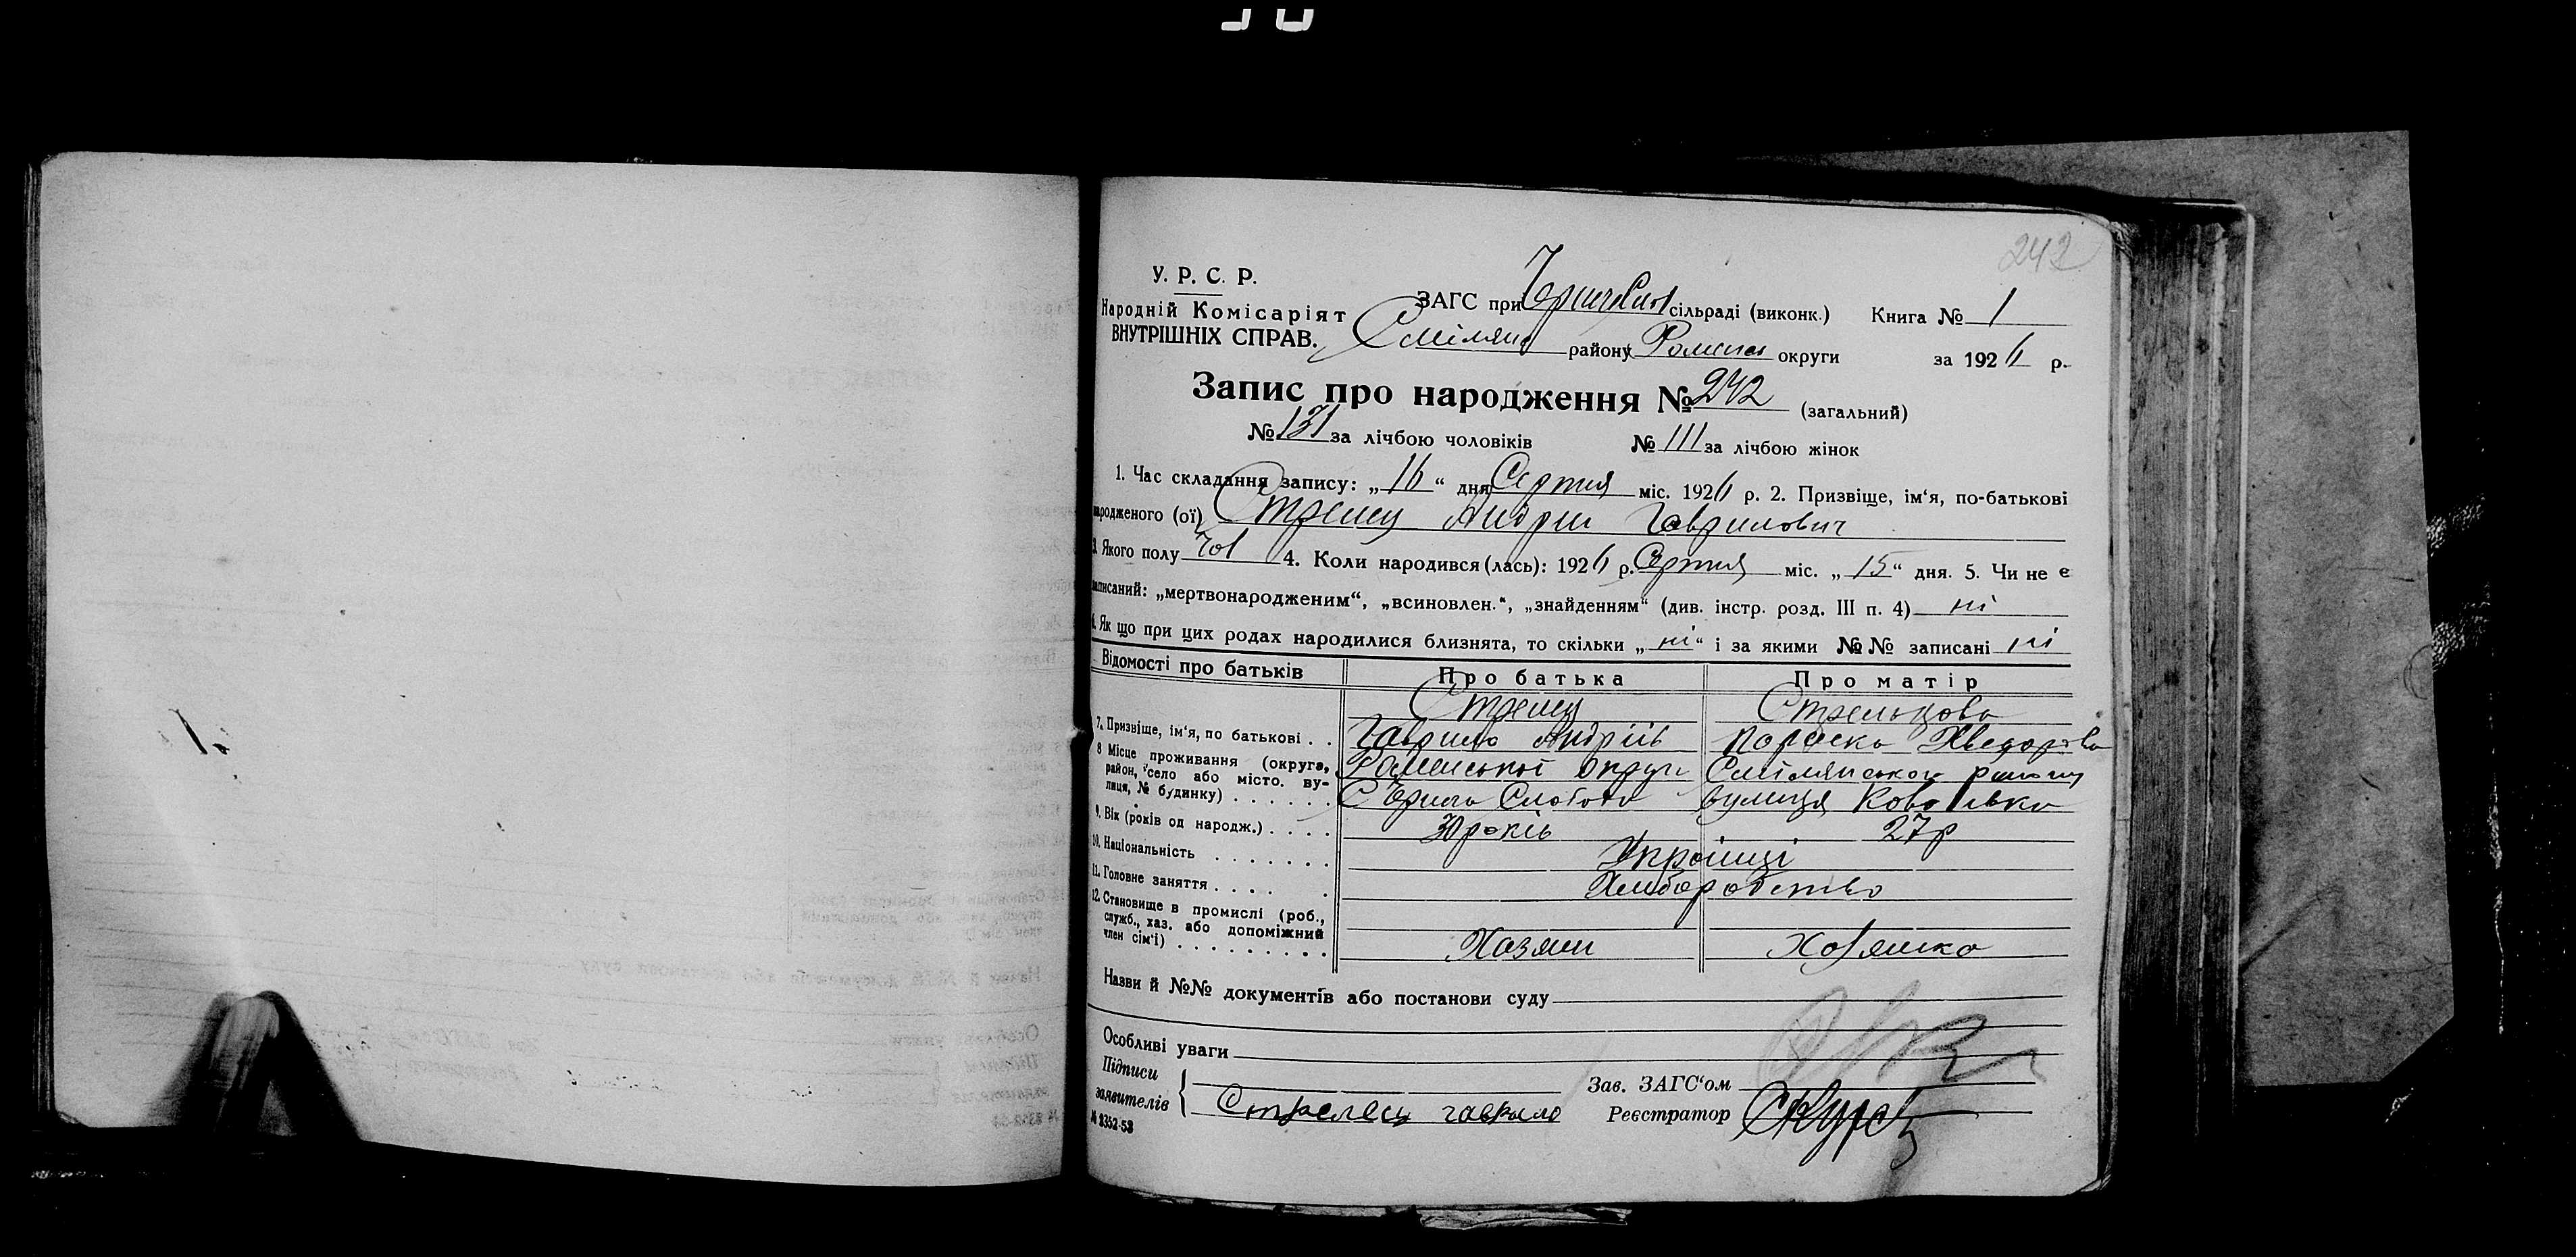 242
У. Р. С. Р.
Народній Комісаріят
ВНУТРІШНІХ СПРАВ.
ЗАГС при сільраді (виконк.) Книга № 1
Смілянс району Роменсь округи за 1926 р.
Запис про народження № 242 (загальний)
№ 131 за лічбою чоловіків № 111 за лічбою жінок
1. Час складання запису: „16“ дня Серпня міс. 1926 р. 2. Призвіще, ім‘я, по-батькові
народженого (ої) Стрелец Андрій Гаврилович
3. Якого полу чол 4. Коли народився (лась): 1926 р. Серпня міс. „15“ дня. 5. Чи не є
записаний: „мертвонародженим“, „всиновлен.“, „знайденням“ (див. інстр. розд. III п. 4) ні
6. Як що при цих родах народилися близнята, то скільки „ні“ і за якими №№ записані ні
Відомості про батьків Про батька Про матір
7. Призвіще, ім‘я, по батькові . . Стрелец Гаврило Андріїв Стрельцова Параска Хведорова
8 Місце проживання (округа, район, село або місто. вулиця, № будинку) . . . . . . Роменської округи Смілянського району
С Черча Слобода вулиця Ковалівка
9. Вік (років од народж.) . . . . 30 років 27 р
10. Національність . . . . . . . Українці
11. Головне заняття . . . . . Хліборобство
12. Становище в промислі (роб., служб., хаз. або допоміжний член сім‘ї) . . . . . . . . Хазяин Хозяйка
Назви й №№ документів або постанови суду
Особливі уваги
Підписи
заявителів
Стрелец гаврило
Зав. ЗАГС‘ом
Реєстратор
№ 2352-53